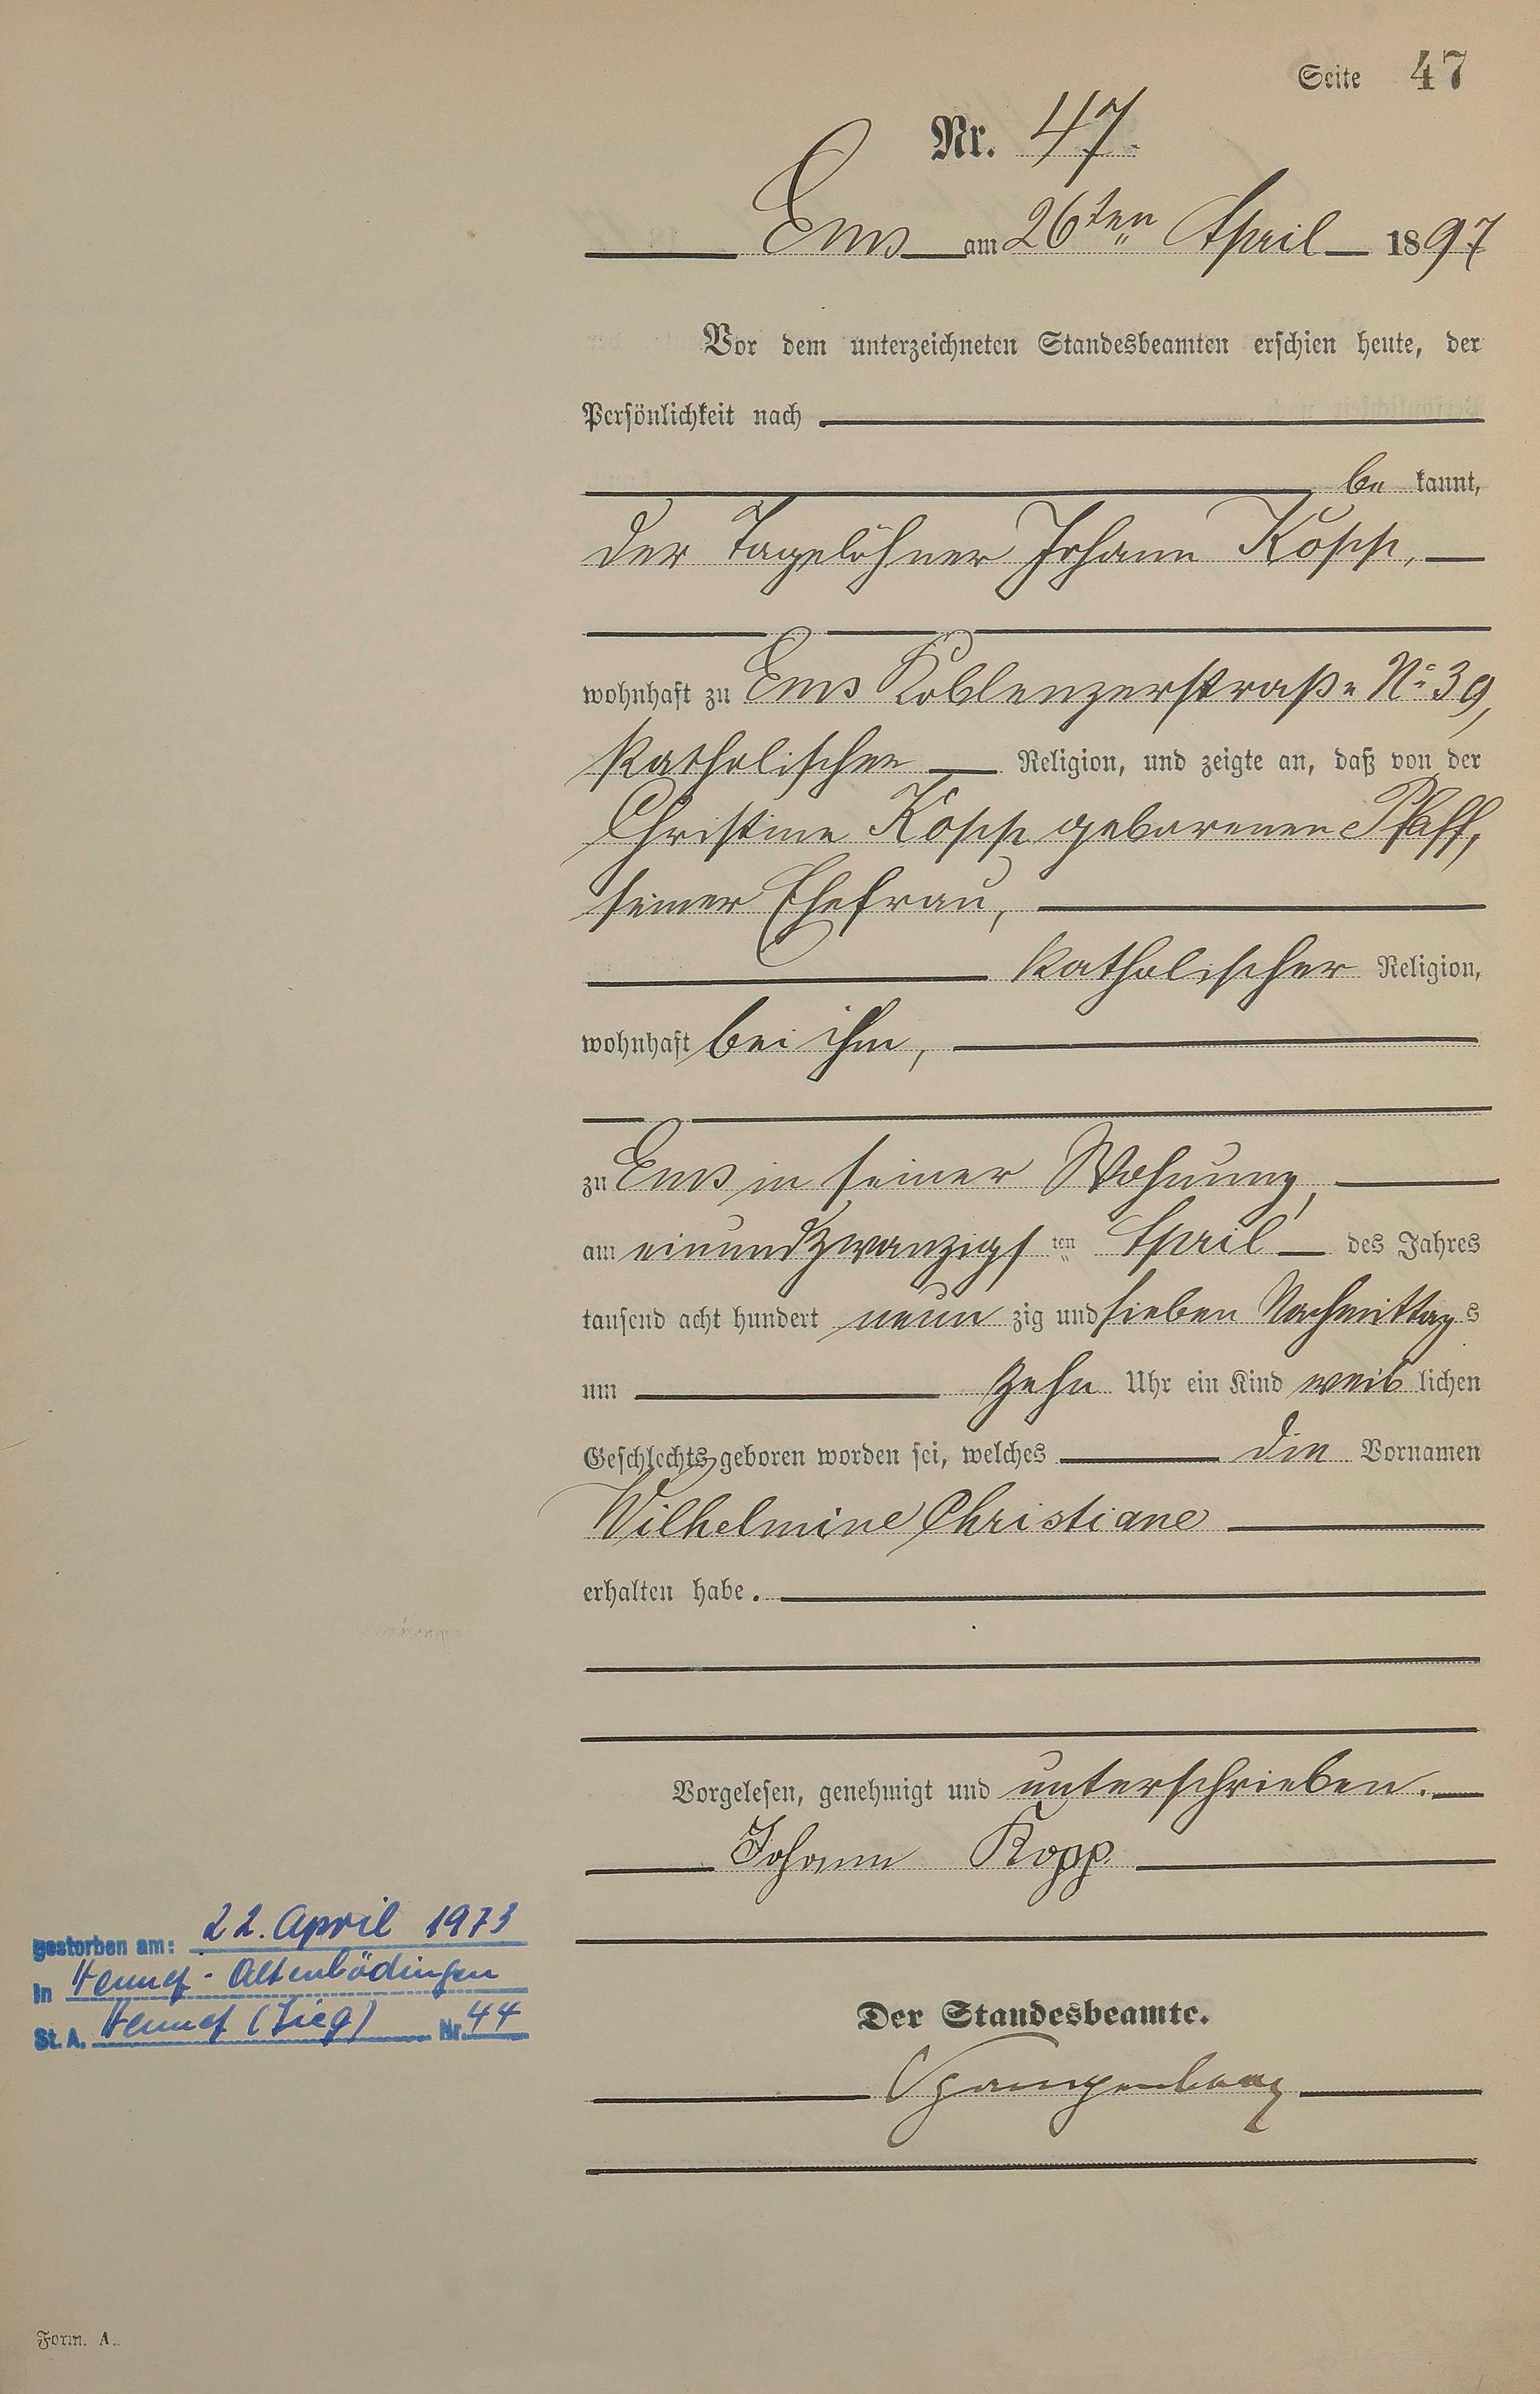 Seite 47
Nr. 47.
Ems am 26ten April 1897
Vor dem unterzeichneten Standesbeamten erschien heute, der
Persönlichkeit nach
be kannt,
der Tagelöhner Johann Kopp,
wohnhaft zu Ems Koblenzerstraße No 39,
katholischer Religion, und zeigte an, daß von der
Christine Kopp geborenen Pfaff,
seiner Ehefrau,
katholischer Religion,
wohnhaft bei ihm,
zu Ems in seiner Wohnung,
am einundzwanzigs ten April des Jahres
tausend acht hundert neun zig und sieben Nachmittag s
um zehn Uhr ein Kind weib lichen
Geschlechts geboren worden sei, welches die Vornamen
Wilhelmine Christiane
erhalten habe.
Vorgelesen, genehmigt und unterschrieben.
Johann Kopp
Der Standesbeamte.
Spangenberg
gestorben am: 22. April 1973
in Hennef - Altenbödingen
St. A. Hennef (Sieg) Nr. 44
Form. A.